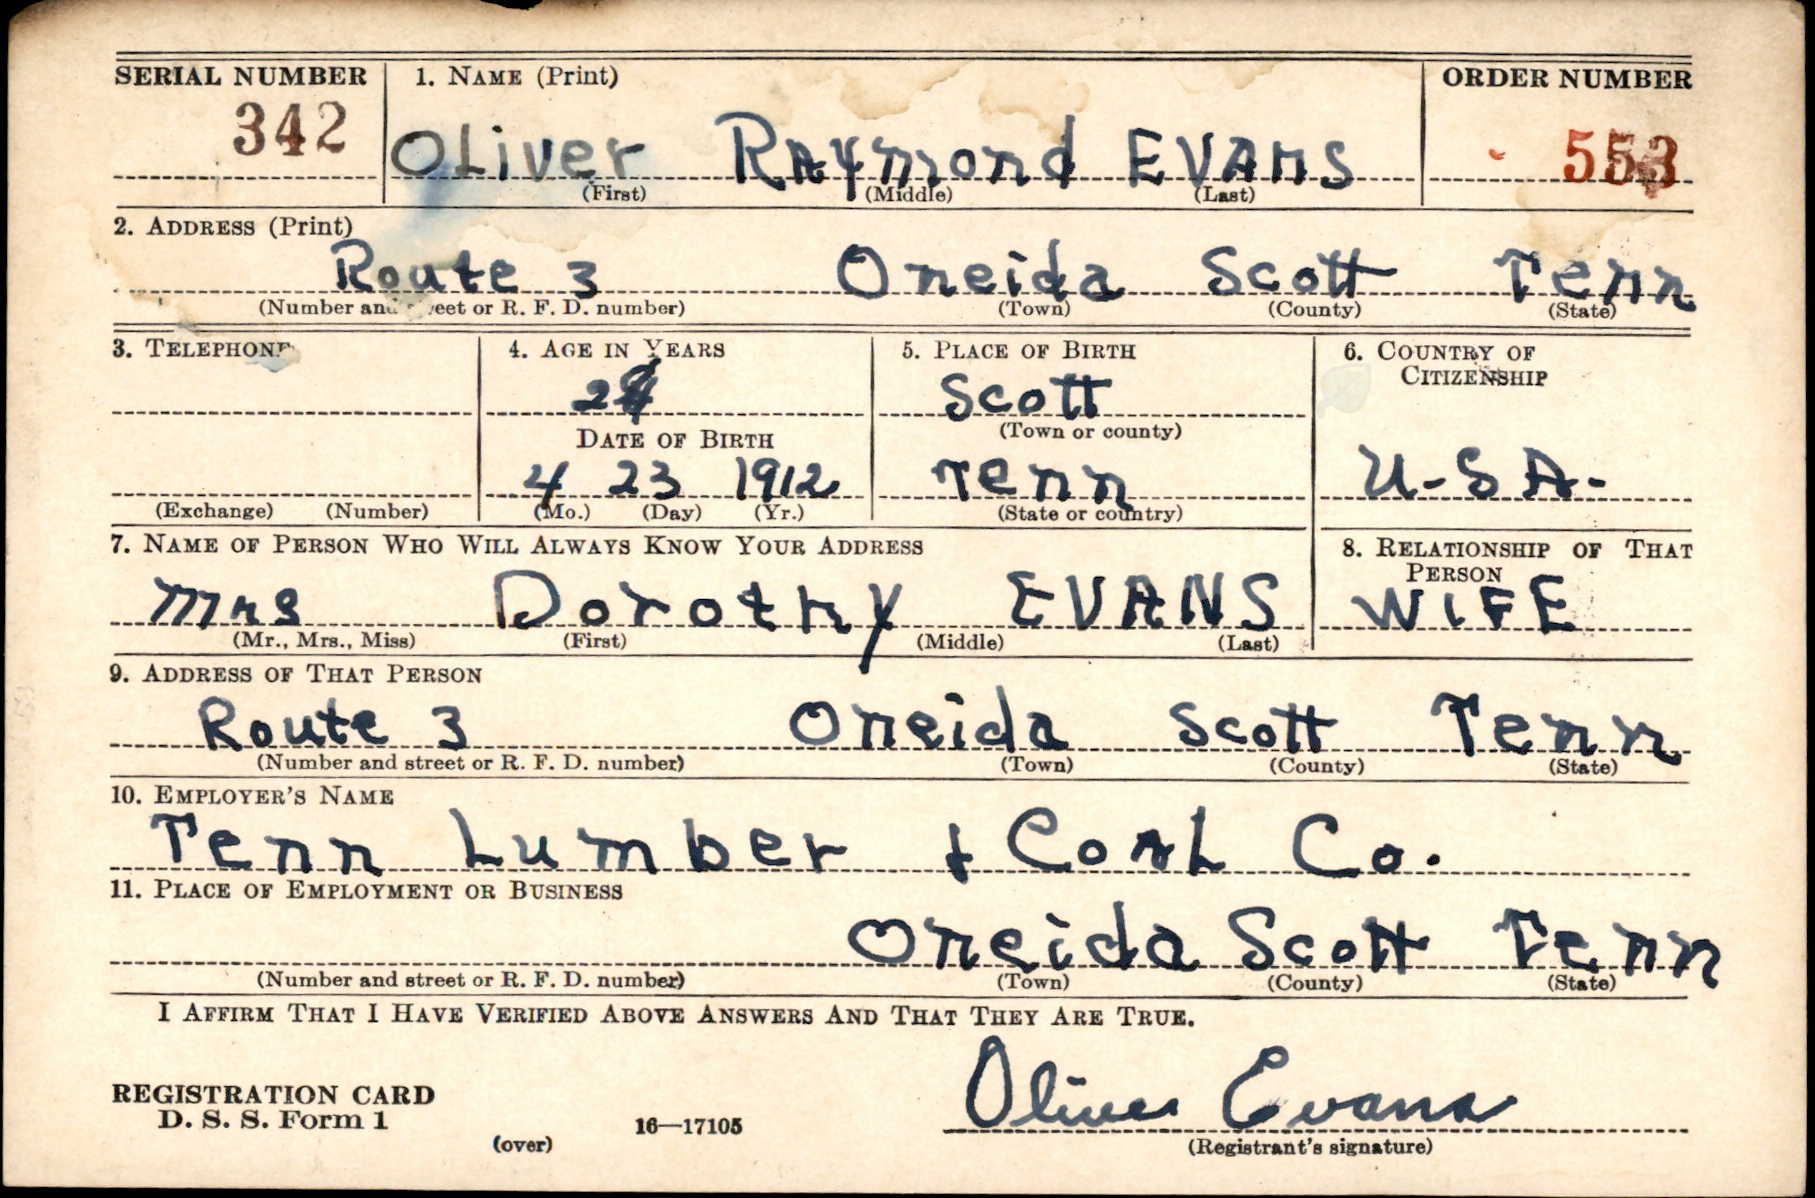 SERIAL NUMBER 1. NAME (Print) ORDER NUMBER
342 OLiver RAymond EVAnS 553
(First) (Middle) (Last)
2. ADDRESS (Print)
Route 3 Oneida Scott Tenn
(Number and street or R. F. D. number) (Town) (County) (State)
3. TELEPHONE 4. AGE IN YEARS 5. PLACE OF BIRTH 6. COUNTRY OF CITIZENSHIP
Scott
(Town or county)
DATE OF BIRTH
4 23 1912 Tenn U-SA-
(Exchange) (Number) (Mo.) (Day) (Yr.) (State or country)
7. NAME OF PERSON WHO WILL ALWAYS KNOW YOUR ADDRESS 8. RELATIONSHIP OF THAT PERSON
Mrs Dorothy EVANS WIFE
(Mr., Mrs., Miss) (First) (Middle) (Last)
9. ADDRESS OF THAT PERSON
Route 3 Oneida Scott Tenn
(Number and street or R. F. D. number) (Town) (County) (State)
10. EMPLOYER'S NAME
Tenn Lumber & CoAL Co.
11. PLACE OF EMPLOYMENT OR BUSINESS
Oneida Scott Tenn
(Number and street or R. F. D. number) (Town) (County) (State)
I AFFIRM THAT I HAVE VERIFIED ABOVE ANSWERS AND THAT THEY ARE TRUE.
Oliver Evans
REGISTRATION CARD
D. S. S. Form 1 16—17105
(over) (Registrant's signature)